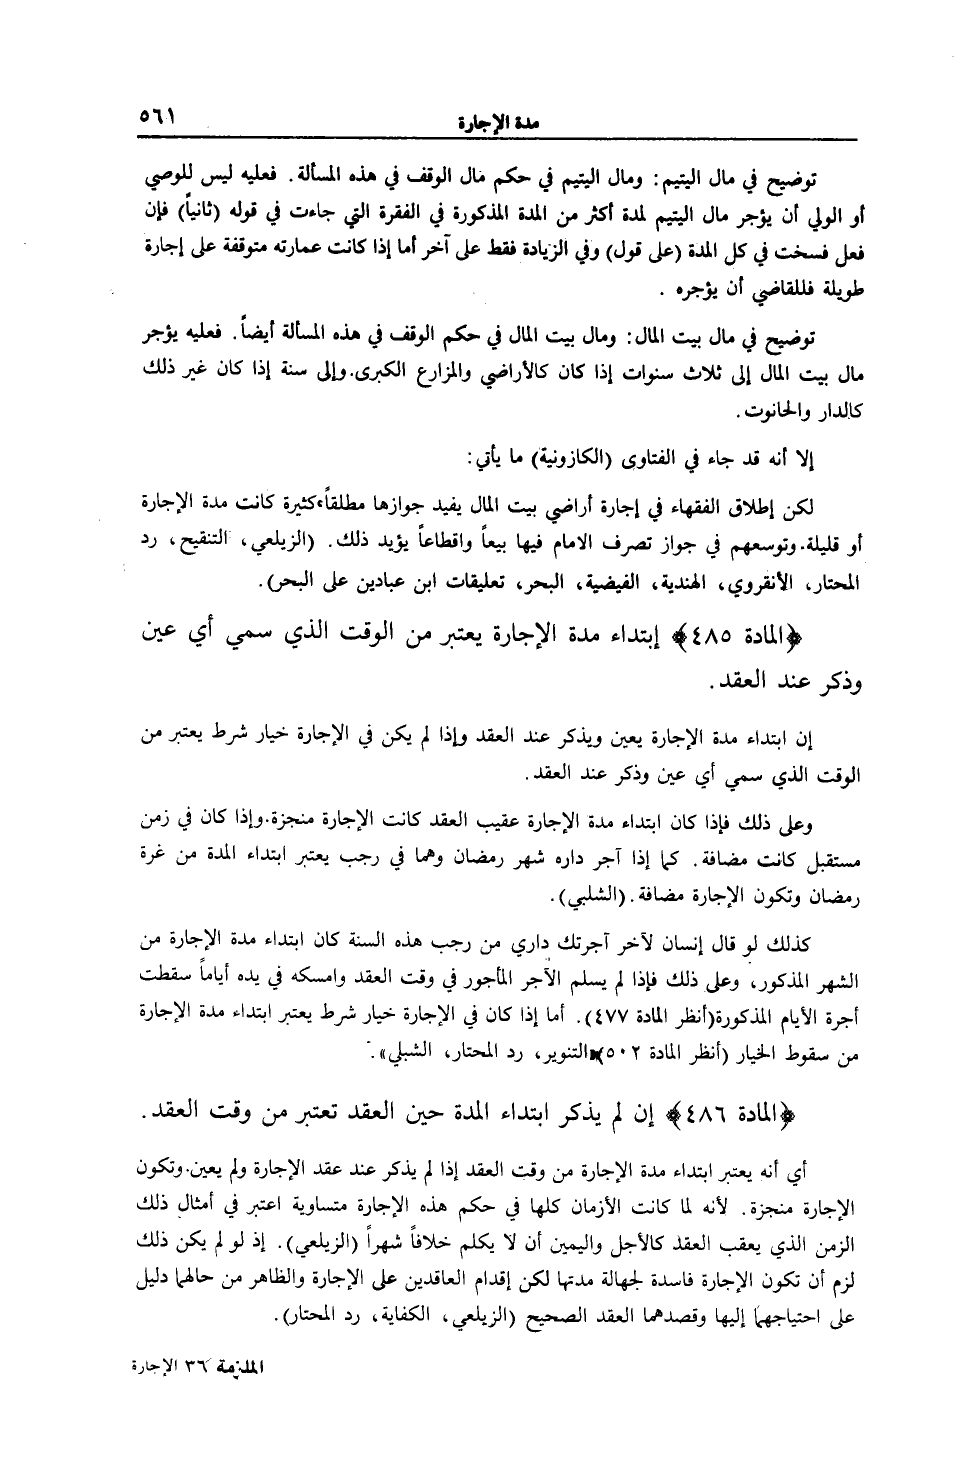 مدة الإجارة ٥٦١
توضيح في مال اليتيم: ومال اليتيم في حكم مال الوقف في هذه المسألة. فعليه ليس للوصي
أو الولي أن يؤجر مال اليتيم لمدة أكثر من المدة المذكورة في الفقرة التي جاءت في قوله (ثانياً) فإن
فعل فسخت في كل المدة (على قول) وفي الزيادة فقط على آخر أما إذا كانت عمارته متوقفة على إجارة
طويلة فللقاضي أن يؤجره .
توضيح في مال بيت المال: ومال بيت المال في حكم الوقف في هذه المسألة أيضاً. فعليه يؤجر
مال بيت المال إلى ثلاث سنوات إذا كان كالأراضي والمزارع الكبرى.وإلى سنة إذا كان غير ذلك
كالدار والحانوت.
إلا أنه قد جاء في الفتاوى (الكازونية) ما يأتي:
لكن إطلاق الفقهاء في إجارة أراضي بيت المال يفيد جوازها مطلقاً،كثيرة كانت مدة الإجارة
أو قليلة.وتوسعهم في جواز تصرف الامام فيها بيعاً واقطاعاً يؤيد ذلك. (الزيلعي، التنقيح، رد
المحتار، الأنقروي، الهندية، الفيضية، البحر، تعليقات ابن عبادين على البحر).
﴿المادة ٤٨٥﴾ إبتداء مدة الإجارة يعتبر من الوقت الذي سمي أي عين
وذكر عند العقد.
إن ابتداء مدة الإجارة يعين ويذكر عند العقد وإذا لم يكن في الإجارة خيار شرط يعتبر من
الوقت الذي سمي أي عين وذكر عند العقد.
وعلى ذلك فإذا كان ابتداء مدة الإجارة عقيب العقد كانت الإجارة منجزة.وإذا كان في زمن
مستقبل كانت مضافة. كما إذا آجر داره شهر رمضان وهما في رجب يعتبر ابتداء المدة من غرة
رمضان وتكون الإجارة مضافة.(الشلبي).
كذلك لو قال إنسان لآخر آجرتك داري من رجب هذه السنة كان ابتداء مدة الإجارة من
الشهر المذكور، وعلى ذلك فإذا لم يسلم الآجر المأجور في وقت العقد وامسكه في يده أياماً سقطت
أجرة الأيام المذكورة(أنظر المادة ٤٧٧). أما إذا كان في الإجارة خيار شرط يعتبر ابتداء مدة الإجارة
من سقوط الخيار (أنظر المادة ٥٠٢)«التنوير، رد المحتار، الشبلي».
﴿المادة ٤٨٦﴾ إن لم يذكر ابتداء المدة حين العقد تعتبر من وقت العقد.
أي أنه يعتبر ابتداء مدة الإجارة من وقت العقد إذا لم يذكر عند عقد الإجارة ولم يعين.وتكون
الإجارة منجزة. لأنه لما كانت الأزمان كلها في حكم هذه الإجارة متساوية اعتبر في أمثال ذلك
الزمن الذي يعقب العقد كالأجل واليمين أن لا يكلم خلافاً شهراً (الزيلعي). إذ لو لم يكن ذلك
لزم أن تكون الإجارة فاسدة لجهالة مدتها لكن إقدام العاقدين على الإجارة والظاهر من حالهما دليل
على احتياجهما إليها وقصدهما العقد الصحيح (الزيلعي، الكفاية، رد المحتار).
الملزمة ٣٦ الإجارة